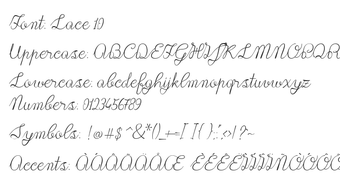 Font: Lace 19
Uppercase: ABCDEFGHIJKLMNOPQR
Lowercase: abcdefghijklmnopqrstuvwxyz
Numbers: 0123456789
Symbols: !@#$^&*()_+=[]{};:,<>/?~
Accents: ÀÁÂÃÄÅÆ ÈÉÊËÌÍÎÏÑÒÓÔÕ